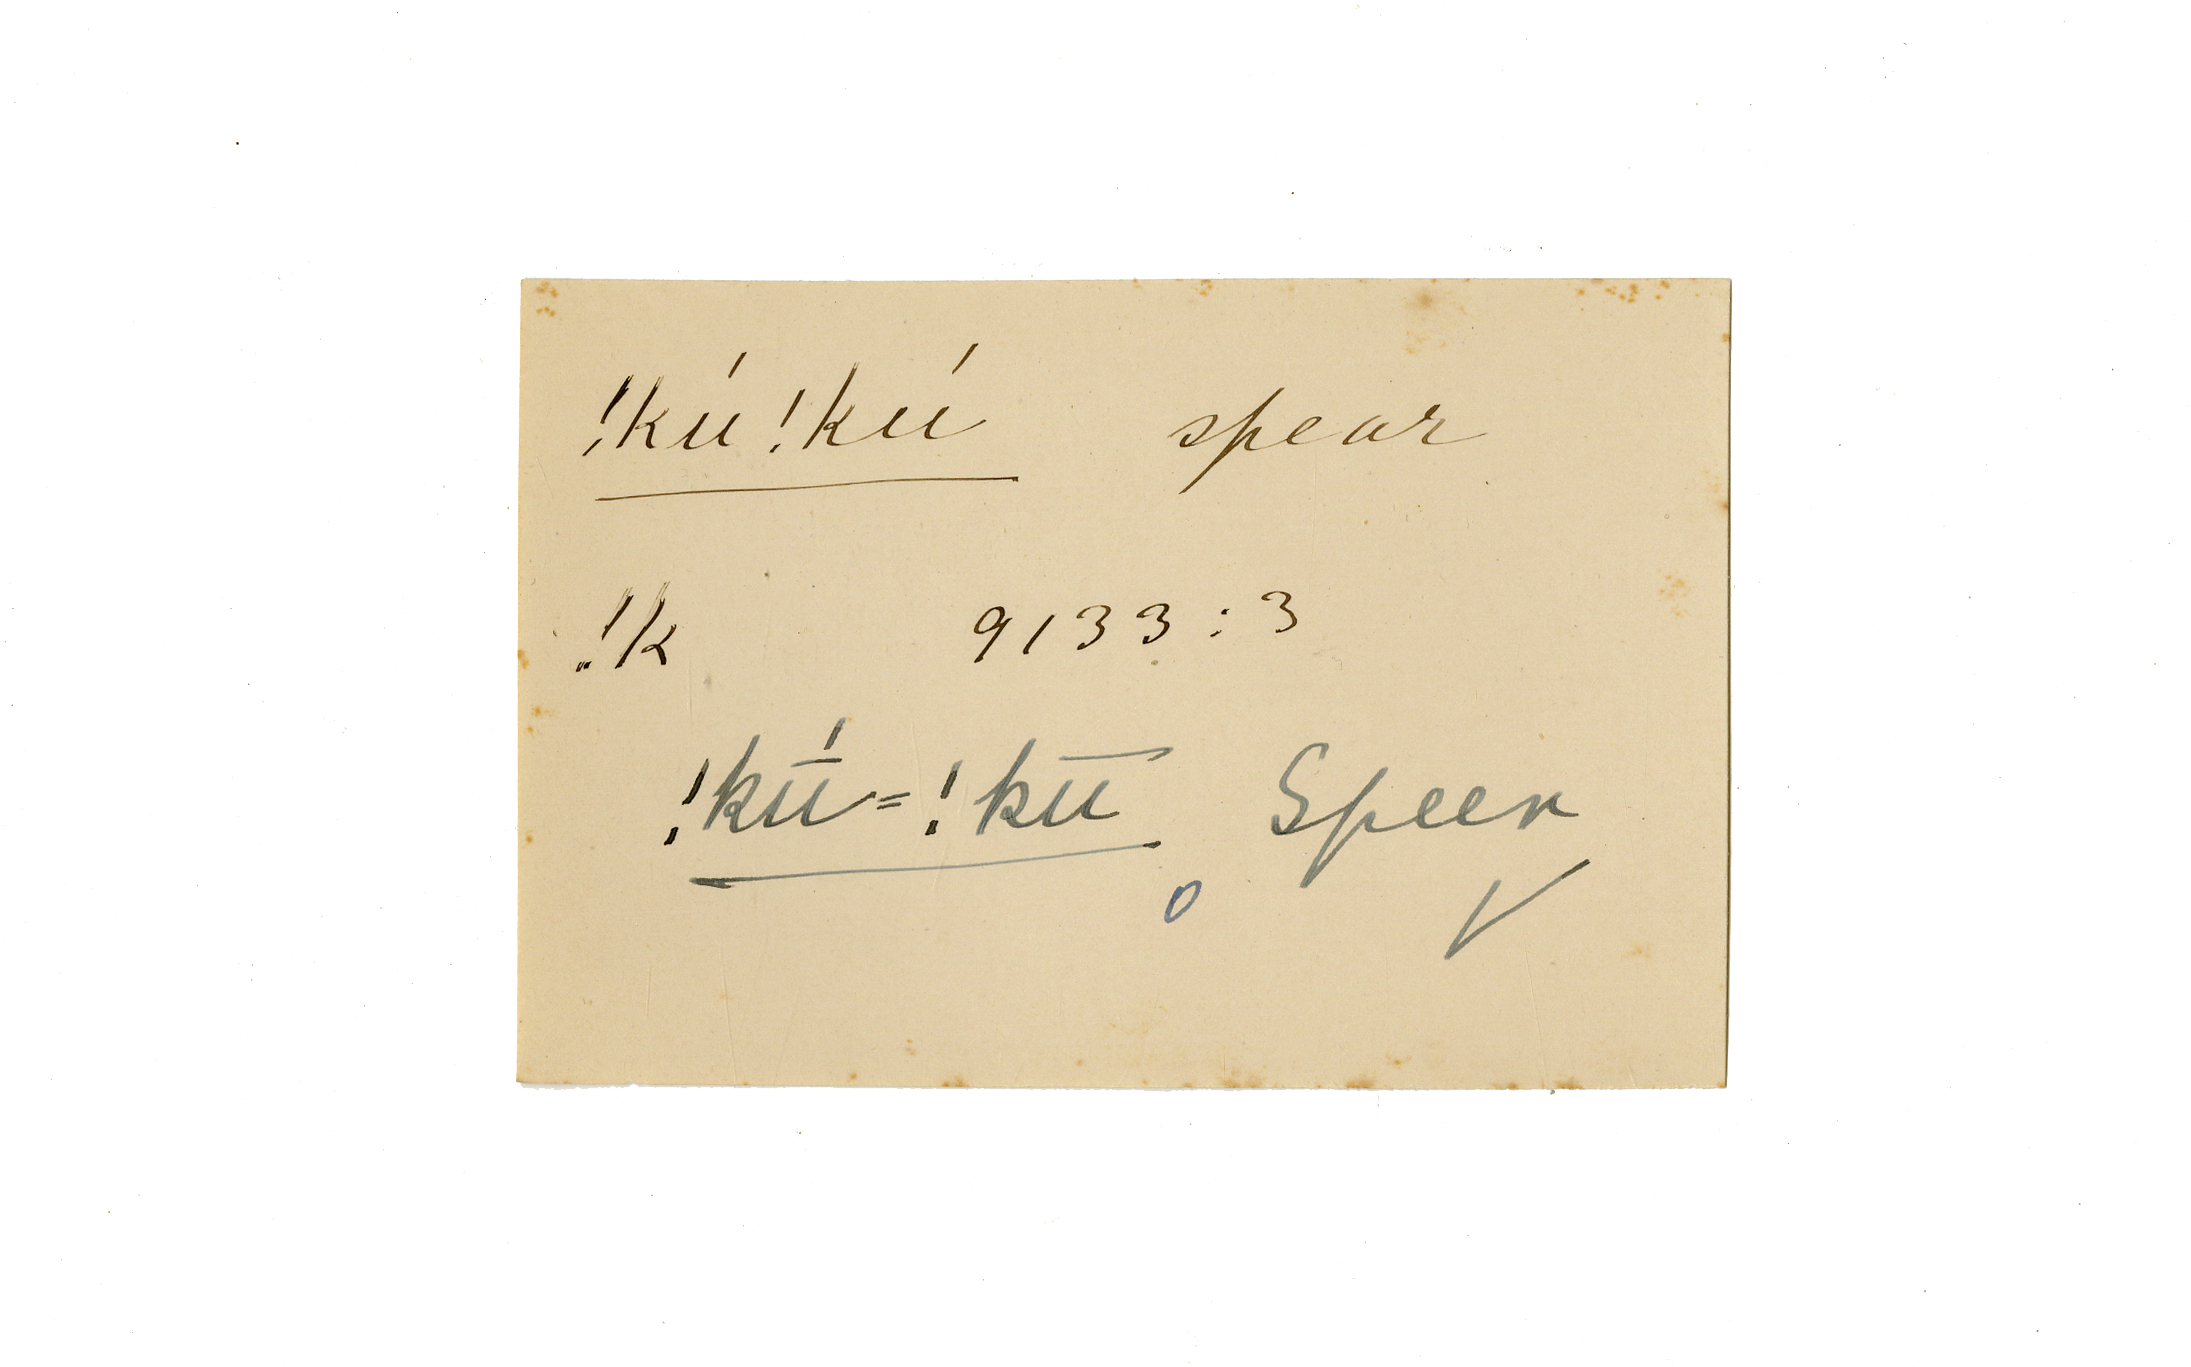 !kú!kú spear
!k 9133:3
!kū́=!kū Speer
o ✓